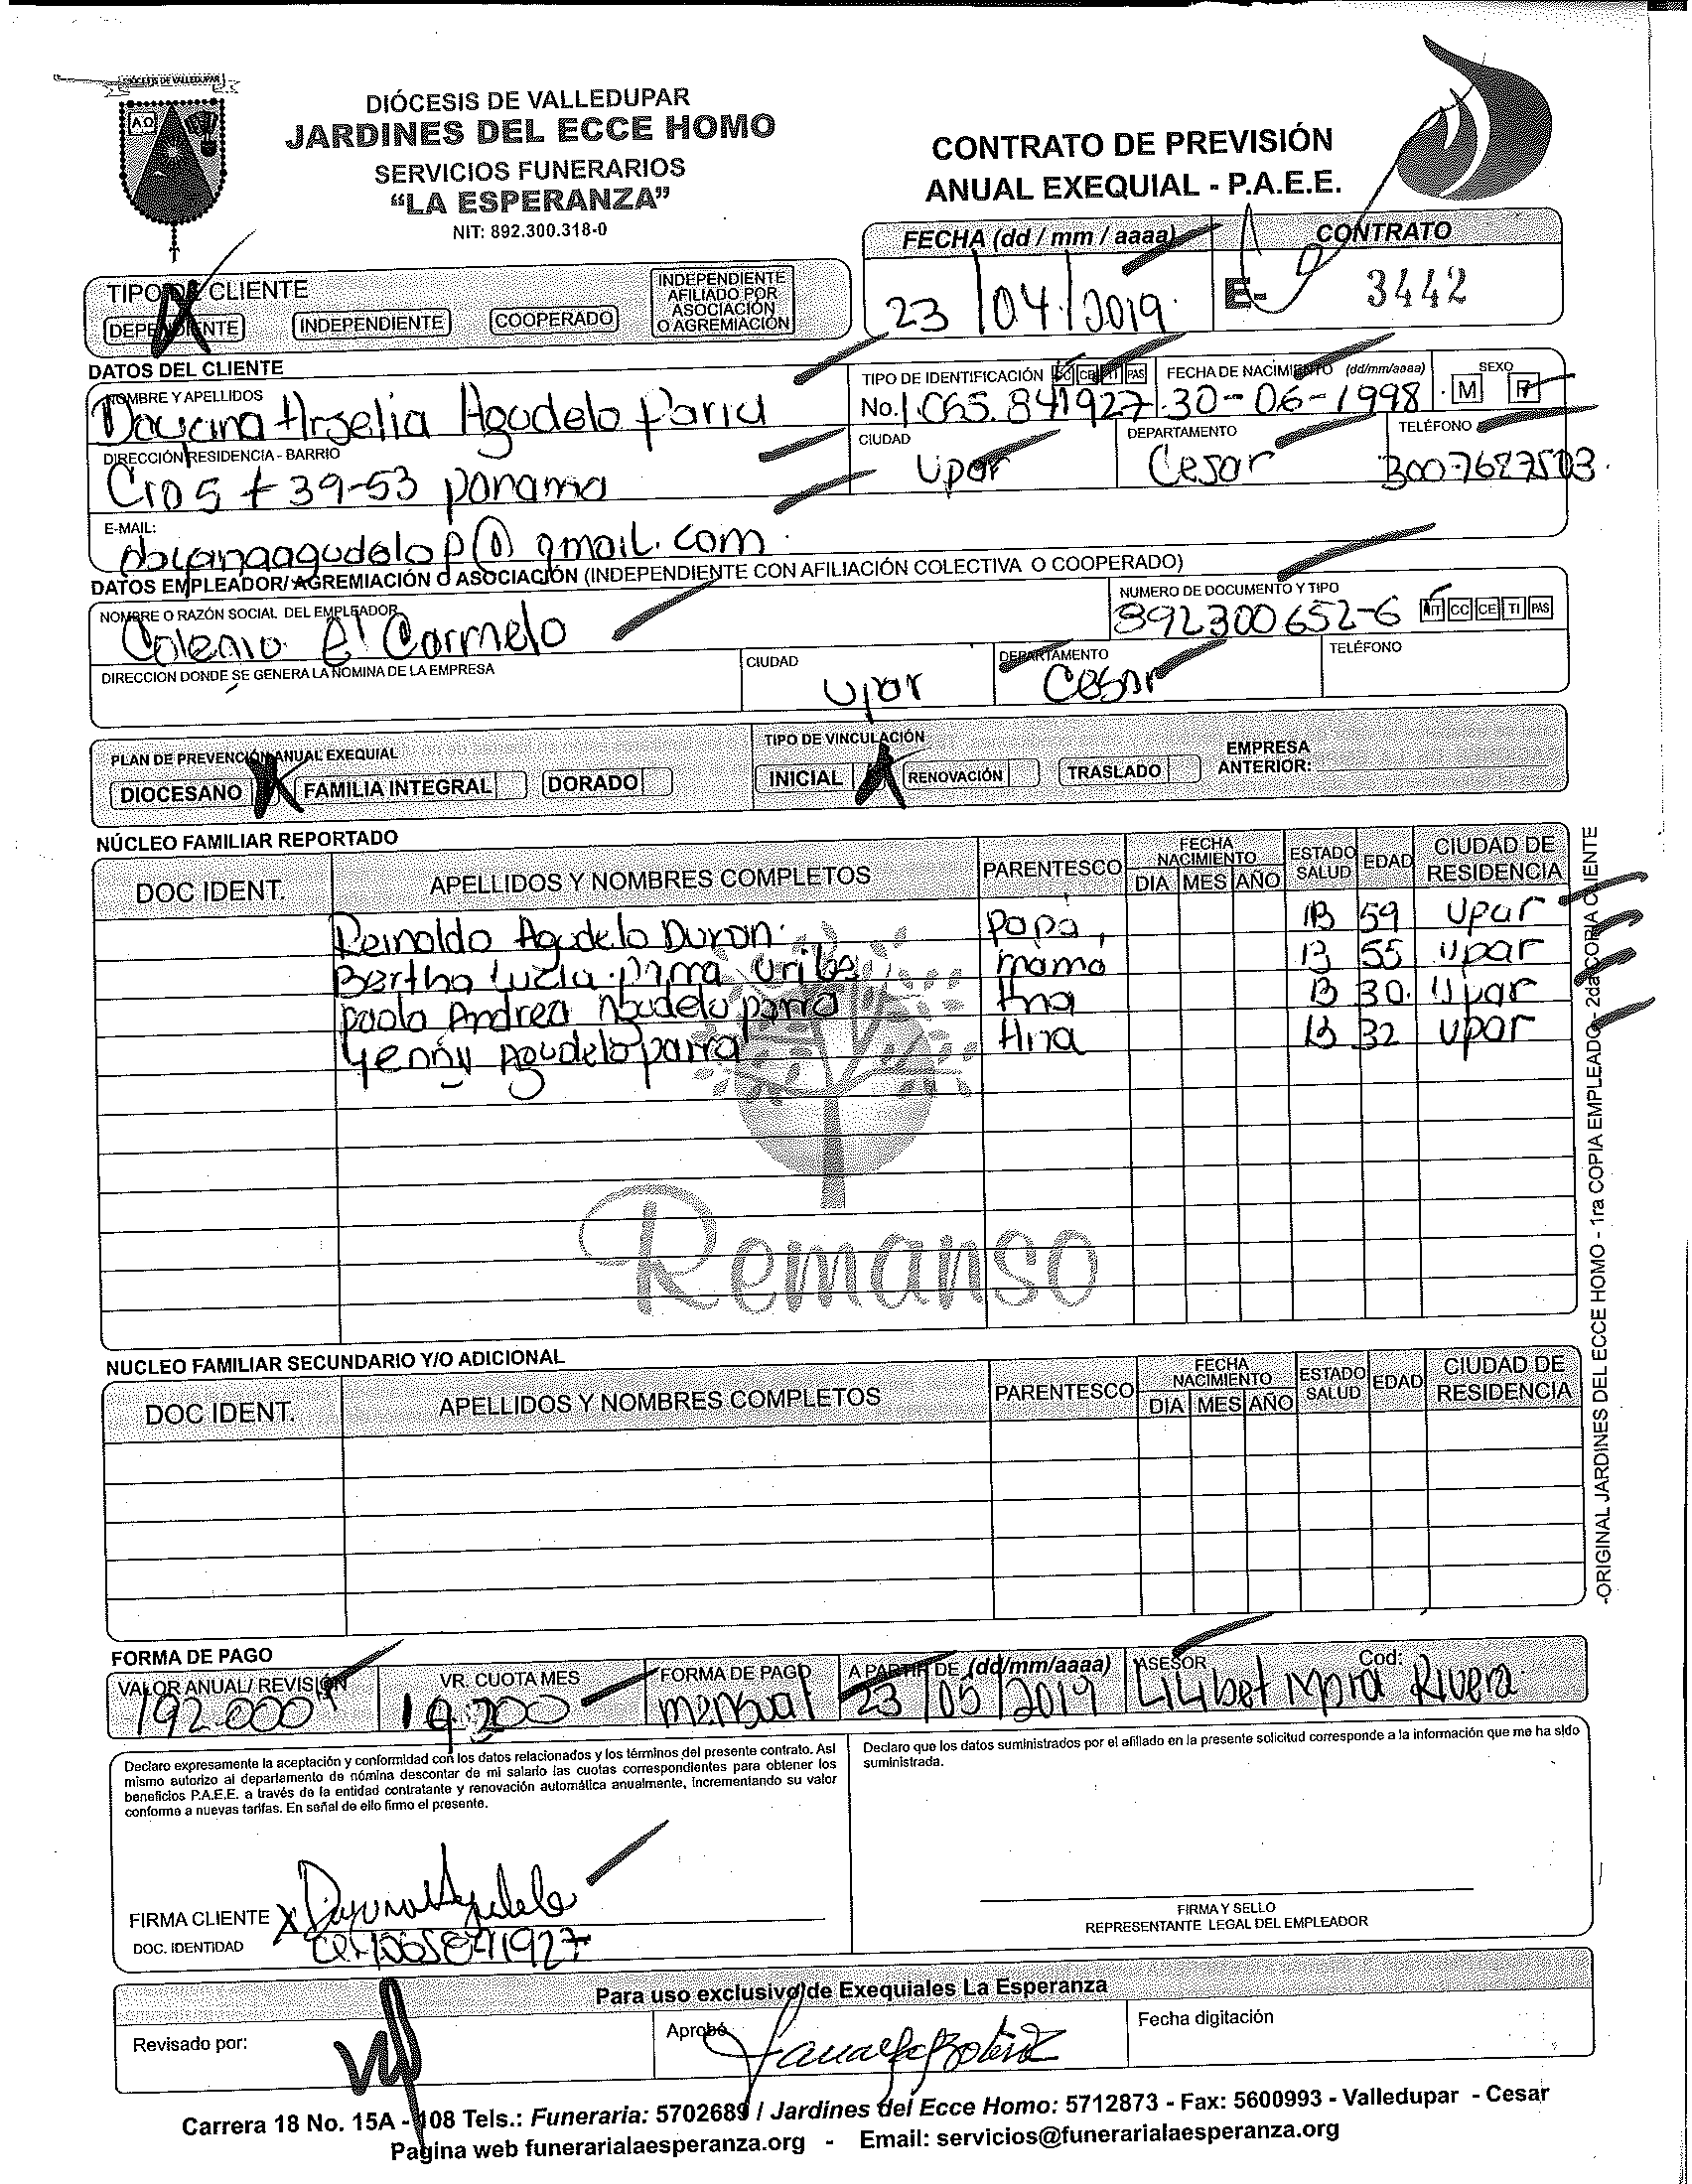 DIÓCESIS DE VALLEDUPAR
DIÓCESIS DE VALLEDUPAR
JARDINES DEL ECCE HOMO
SERVICIOS FUNERARIOS
“LA ESPERANZA”
NIT: 892.300.318-0
CONTRATO DE PREVISIÓN
ANUAL EXEQUIAL - P.A.E.E.
FECHA (dd / mm / aaaa) CONTRATO
23 /04/2019. E- 3442
TIPO DE CLIENTE
DEPENDIENTE INDEPENDIENTE COOPERADO INDEPENDIENTE AFILIADO POR ASOCIACIÓN O AGREMIACIÓN
DATOS DEL CLIENTE
NOMBRE Y APELLIDOS TIPO DE IDENTIFICACIÓN CC CE TI PAS FECHA DE NACIMIENTO (dd/mm/aaaa) SEXO
Dayana Argelia Agudelo Parra No. 1.065.841927 30-06-1998 M F
DIRECCIÓN RESIDENCIA - BARRIO CIUDAD DEPARTAMENTO TELÉFONO
Cra 5 # 39-53 panama Upar Cesar 3007687503
E-MAIL:
dayanaagudelop@gmail.com
DATOS EMPLEADOR/ AGREMIACIÓN O ASOCIACIÓN (INDEPENDIENTE CON AFILIACIÓN COLECTIVA O COOPERADO)
NOMBRE O RAZÓN SOCIAL DEL EMPLEADOR NUMERO DE DOCUMENTO Y TIPO
Colegio El Carmelo 892300652-6 NIT CC CE TI PAS
DIRECCION DONDE SE GENERA LA NOMINA DE LA EMPRESA CIUDAD DEPARTAMENTO TELÉFONO
Upar Cesar
PLAN DE PREVENCIÓN ANUAL EXEQUIAL TIPO DE VINCULACIÓN
DIOCESANO FAMILIA INTEGRAL DORADO INICIAL RENOVACIÓN TRASLADO EMPRESA ANTERIOR:
NÚCLEO FAMILIAR REPORTADO
DOC IDENT. APELLIDOS Y NOMBRES COMPLETOS PARENTESCO FECHA NACIMIENTO DIA MES AÑO ESTADO SALUD EDAD CIUDAD DE RESIDENCIA
Reinaldo Agudelo Duron Papa B 59 Upar
Bertha Lucia Parra Uribe mama B 55 Upar
Paola Andrea Agudelo parra Hna B 30. Upar
Yenny Agudelo parra Hna B 32 Upar
Remanso
NUCLEO FAMILIAR SECUNDARIO Y/O ADICIONAL
DOC IDENT. APELLIDOS Y NOMBRES COMPLETOS PARENTESCO FECHA NACIMIENTO DIA MES AÑO ESTADO SALUD EDAD CIUDAD DE RESIDENCIA
-ORIGINAL JARDINES DEL ECCE HOMO - 1ra COPIA EMPLEADO - 2da COPIA CLIENTE
FORMA DE PAGO
VALOR ANUAL/ REVISIÓN VR. CUOTA MES FORMA DE PAGO A PARTIR DE (dd/mm/aaaa) ASESOR Cod:
192.000 19.200 mensual 23/05/2019 Lilibet Mora Rivera
Declaro expresamente la aceptación y conformidad con los datos relacionados y los términos del presente contrato. Así
mismo autorizo al departamento de nómina descontar de mi salario las cuotas correspondientes para obtener los
beneficios P.A.E.E. a través de la entidad contratante y renovación automática anualmente, incrementando su valor
conforme a nuevas tarifas. En señal de ello firmo el presente.
Declaro que los datos suministrados por el afiliado en la presente solicitud corresponde a la información que me ha sido
suministrada.
FIRMA CLIENTE X Dayana Agudelo
DOC. IDENTIDAD CC. 1065841927
FIRMA Y SELLO
REPRESENTANTE LEGAL DEL EMPLEADOR
Para uso exclusivo de Exequiales La Esperanza
Revisado por: Aprobó Fecha digitación
Carrera 18 No. 15A - 108 Tels.: Funeraria: 5702689 / Jardines del Ecce Homo: 5712873 - Fax: 5600993 - Valledupar - Cesar
Pagina web funerarialaesperanza.org - Email: servicios@funerarialaesperanza.org